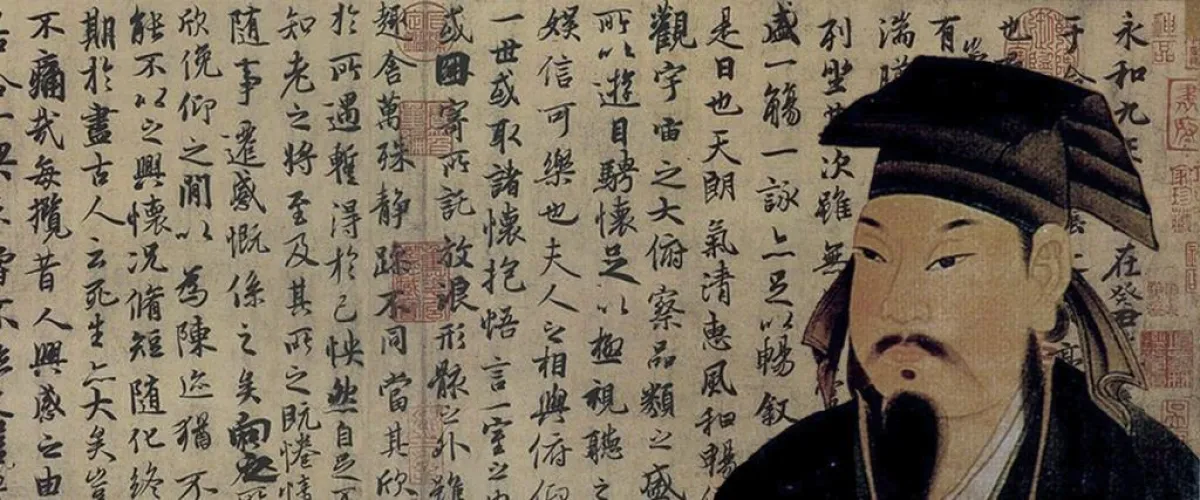 永和九在癸丑
于
也
有
湍
列坐其次雖無
盛一觴一詠亦足以暢叙
是日也天朗氣清惠風和暢
觀宇宙之大俯察品類之盛
所以遊目騁懷足以極視聽之
娛信可樂也夫人之相與俯仰
一世或取諸懷抱悟言一室之
或因寄所託放浪形骸之外雖
趣舍萬殊靜躁不同當其欣
於所遇暫得於己怏然自足不
知老之將至及其所之既惓情
隨事遷感慨係之矣向之所
欣俛仰之閒以為陳迹猶不
能不以之興懷況脩短隨化終
期於盡古人云死生亦大矣豈
不痛哉每攬昔人興感之由
合一